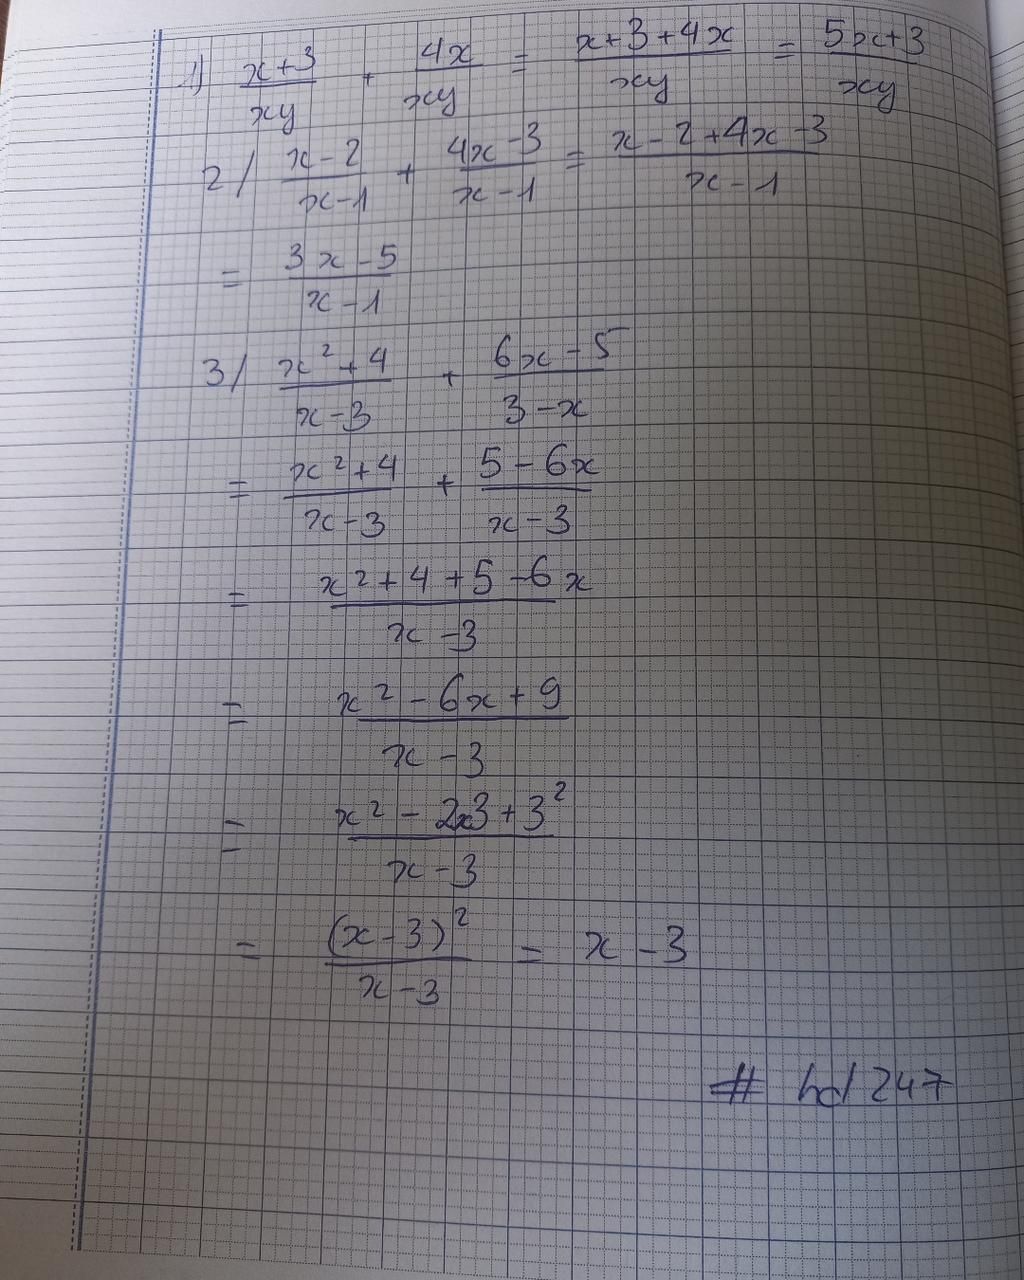 1) (x+3)/(xy) + (4x)/(xy) = (x+3+4x)/(xy) = (5x+3)/(xy)
2/ (x-2)/(x-1) + (4x-3)/(x-1) = (x-2+4x-3)/(x-1)
= (3x-5)/(x-1)
3/ (x²+4)/(x-3) + (6x-5)/(3-x)
= (x²+4)/(x-3) + (5-6x)/(x-3)
= (x²+4+5-6x)/(x-3)
= (x²-6x+9)/(x-3)
= (x²-2x3+3²)/(x-3)
= (x-3)²/(x-3) = x-3
# hd247